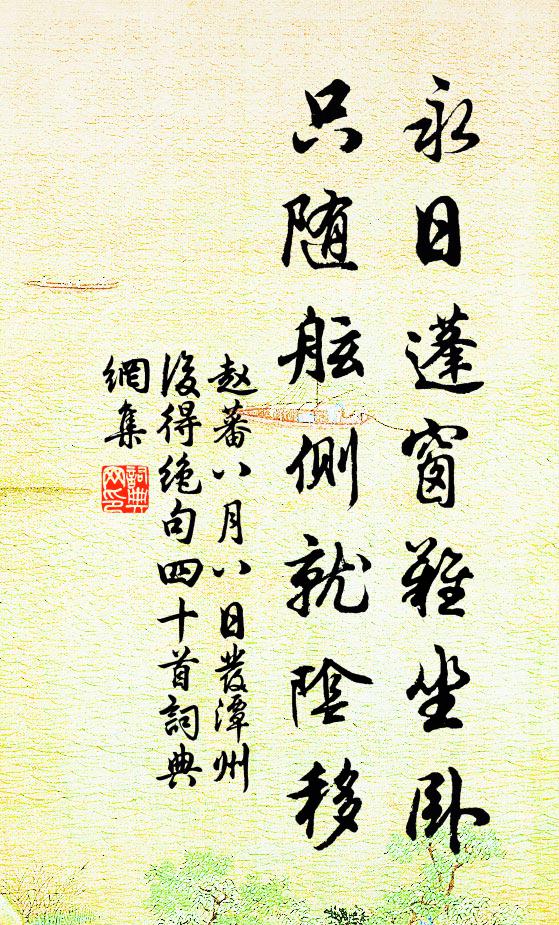 永日蓬窗難坐卧
只随舷側就陰移
赵蕃八月八日發潭州
後得绝句四十首詞典
網集
詞典
网印